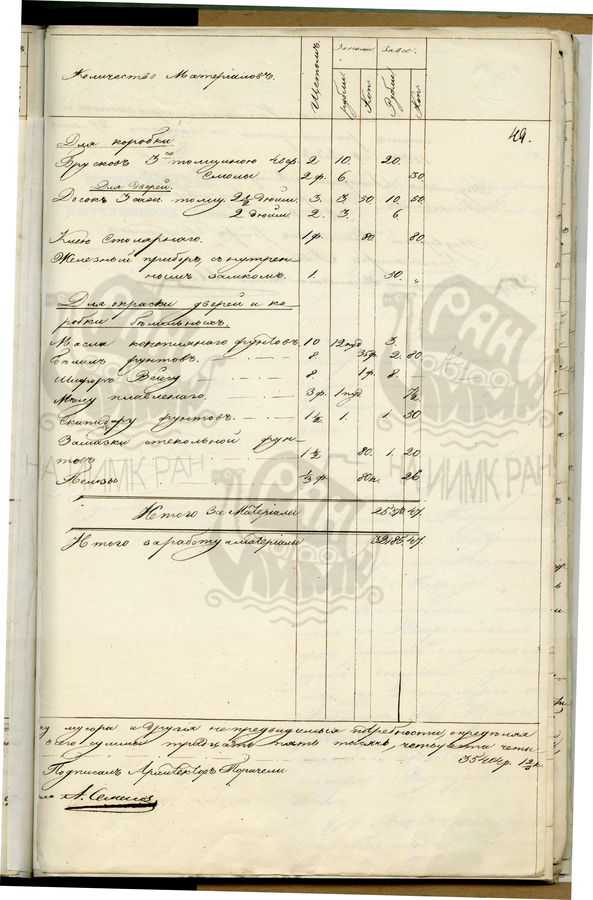 Количество Матеріаловъ. Щетомъ. За все.
Рубли Коп. Рубли Коп.
49.
Для коробки
Брусковъ 3 толщиною 2. 10. 20.
Смолы 2 ф. 6. 30
Для дверей.
Досокъ 3 саж. толщ. 2½ дюйм. 3. 3. 50 10. 50
2 дюйм. 2. 3. 6.
Клею столярнаго. 1 ф. 80. 80.
Желѣзной приборъ съ нутрен-
нымъ замкомъ. 1. 30. "
Для окраски дверей и ко-
робки бѣлильныхъ.
Масла коноплянаго фунтовъ 10 12 пуд 3.
Бѣлилъ фунтовъ. 8 35 ф. 2. 80
8 1 ф. 8.
Мѣлу плавленаго. 3 ф. 1 пуд 7½
Скипидару фунтовъ. 1½ 1. 1. 50
Замазки стекольной фун-
товъ 1½ 80. 1. 20
Пемзы ⅓ ф. 80 к. 26
Итого за матеріалы 47.
Итого за работу и матеріалы 47.
мусора и другія непредвидимыя потребности, опредѣляя
всего суммы тридцать пять тысячъ четыреста четы
35404 р.
Подписалъ Архитекторъ Торичели
А. Семенов
НА ИИМК РАН
НА ИИМК РАН